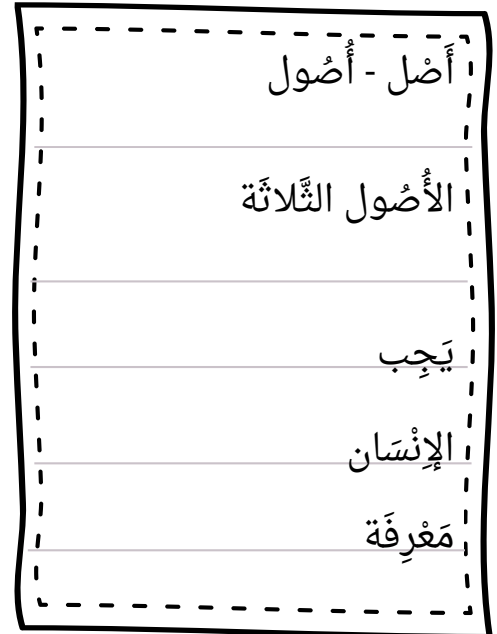 أَصْل - أُصُول
الأُصُول الثَّلاثَة
يَجِب
الإِنْسَان
مَعْرِفَة